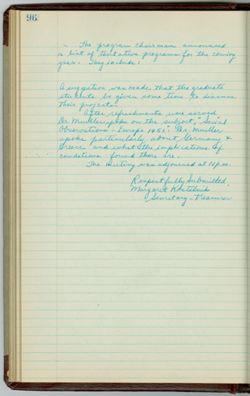 96
The program chairman announced
a list of tentative programs for the coming
year. They include:
A suggestion was made that the graduate
students be given some time to discuss
their projects.
After refreshments was served
Dr. Mueller spoke on the subject, "Social
Observations - Europe 1951." Dr. Mueller
spoke particularly about Germany &
Greece and what the implications of
conditions found there are.
The meeting was adjourned at 10 p.m.
Respectfully submitted,
Margaret
Secretary-Treasurer